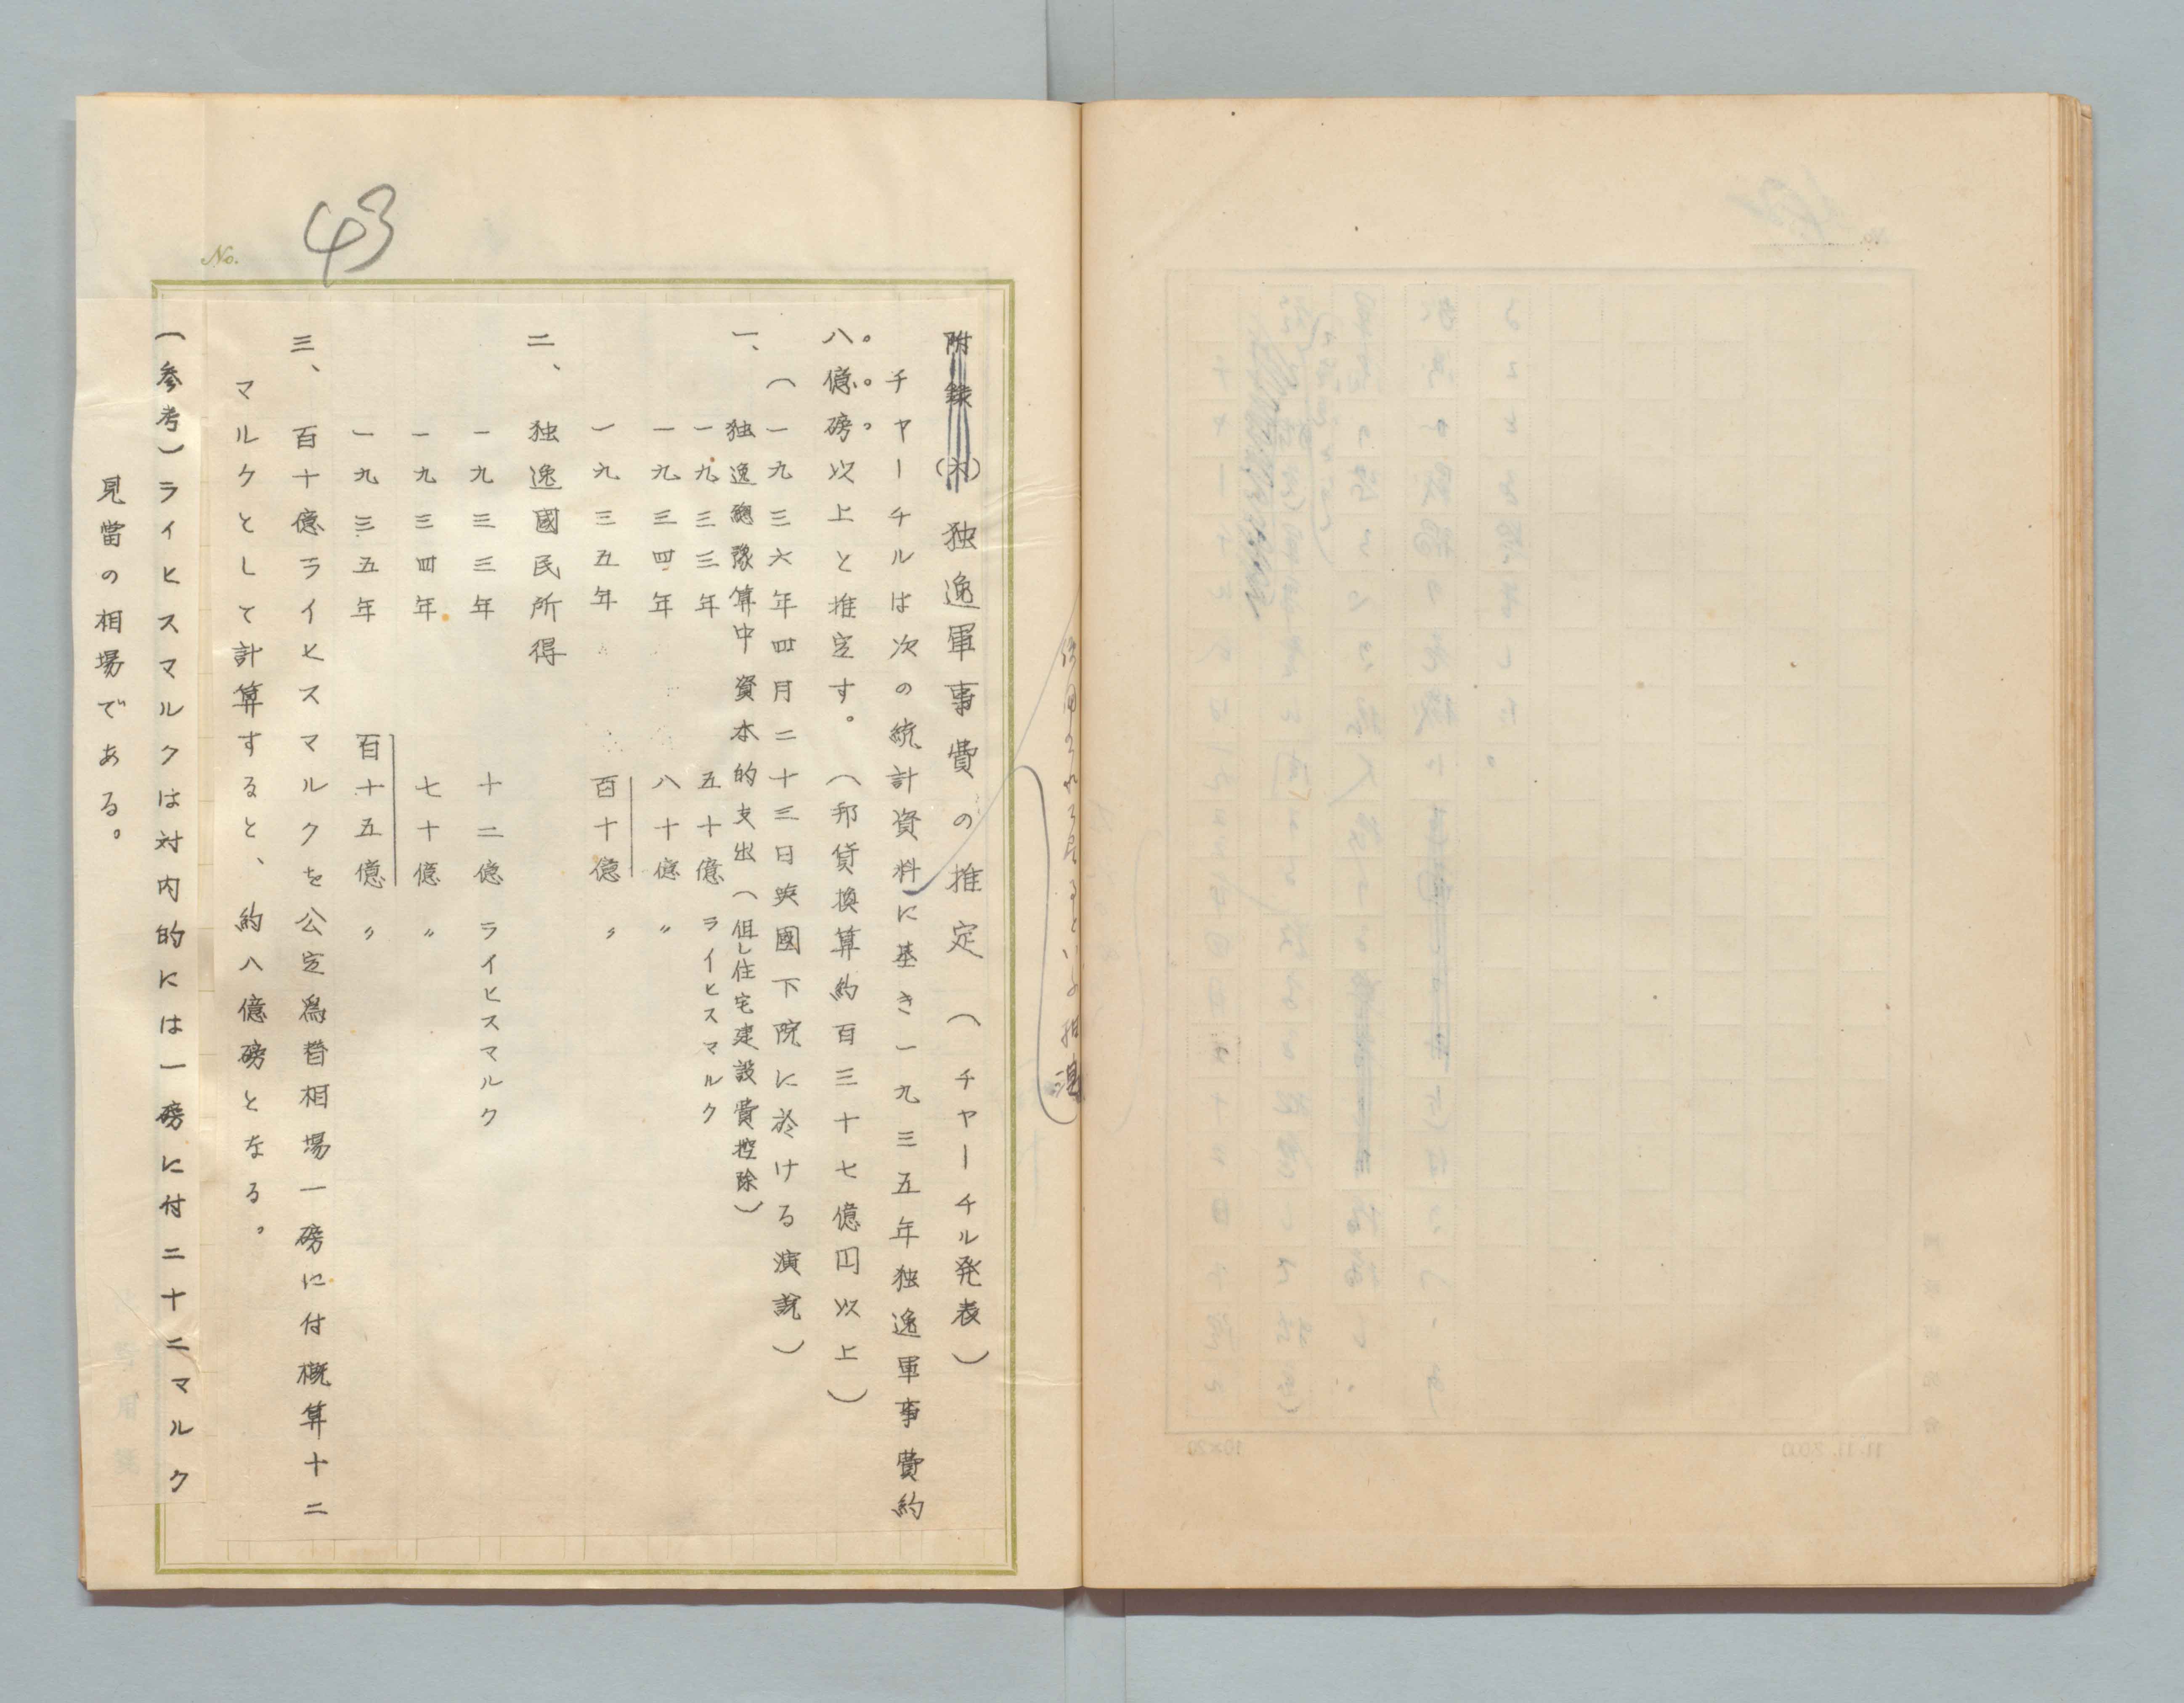 43
No.
附録(六) 独逸軍事費の推定(チャーチル発表)
チャーチルは次の統計資料に基き一九三五年独逸軍事費約
八億磅以上と推定す。(邦貨換算約百三十七億円以上)
(一九三六年四月二十三日英國下院に於ける演説)
一、独逸總豫算中資本的支出(但し住宅建設費控除)
一九三三年 五十億ライヒスマルク
一九三四年 八十億〃
一九三五年 百十億〃
二、独逸國民所得
一九三三年 十二億ライヒスマルク
一九三四年 七十億〃
一九三五年 百十五億〃
三、百十億ライヒスマルクを公定為替相場一磅に付概算十二
マルクとして計算すると、約八億磅となる。
(参考)ライヒスマルクは対内的には一磅に付二十二マルク
見當の相場である。